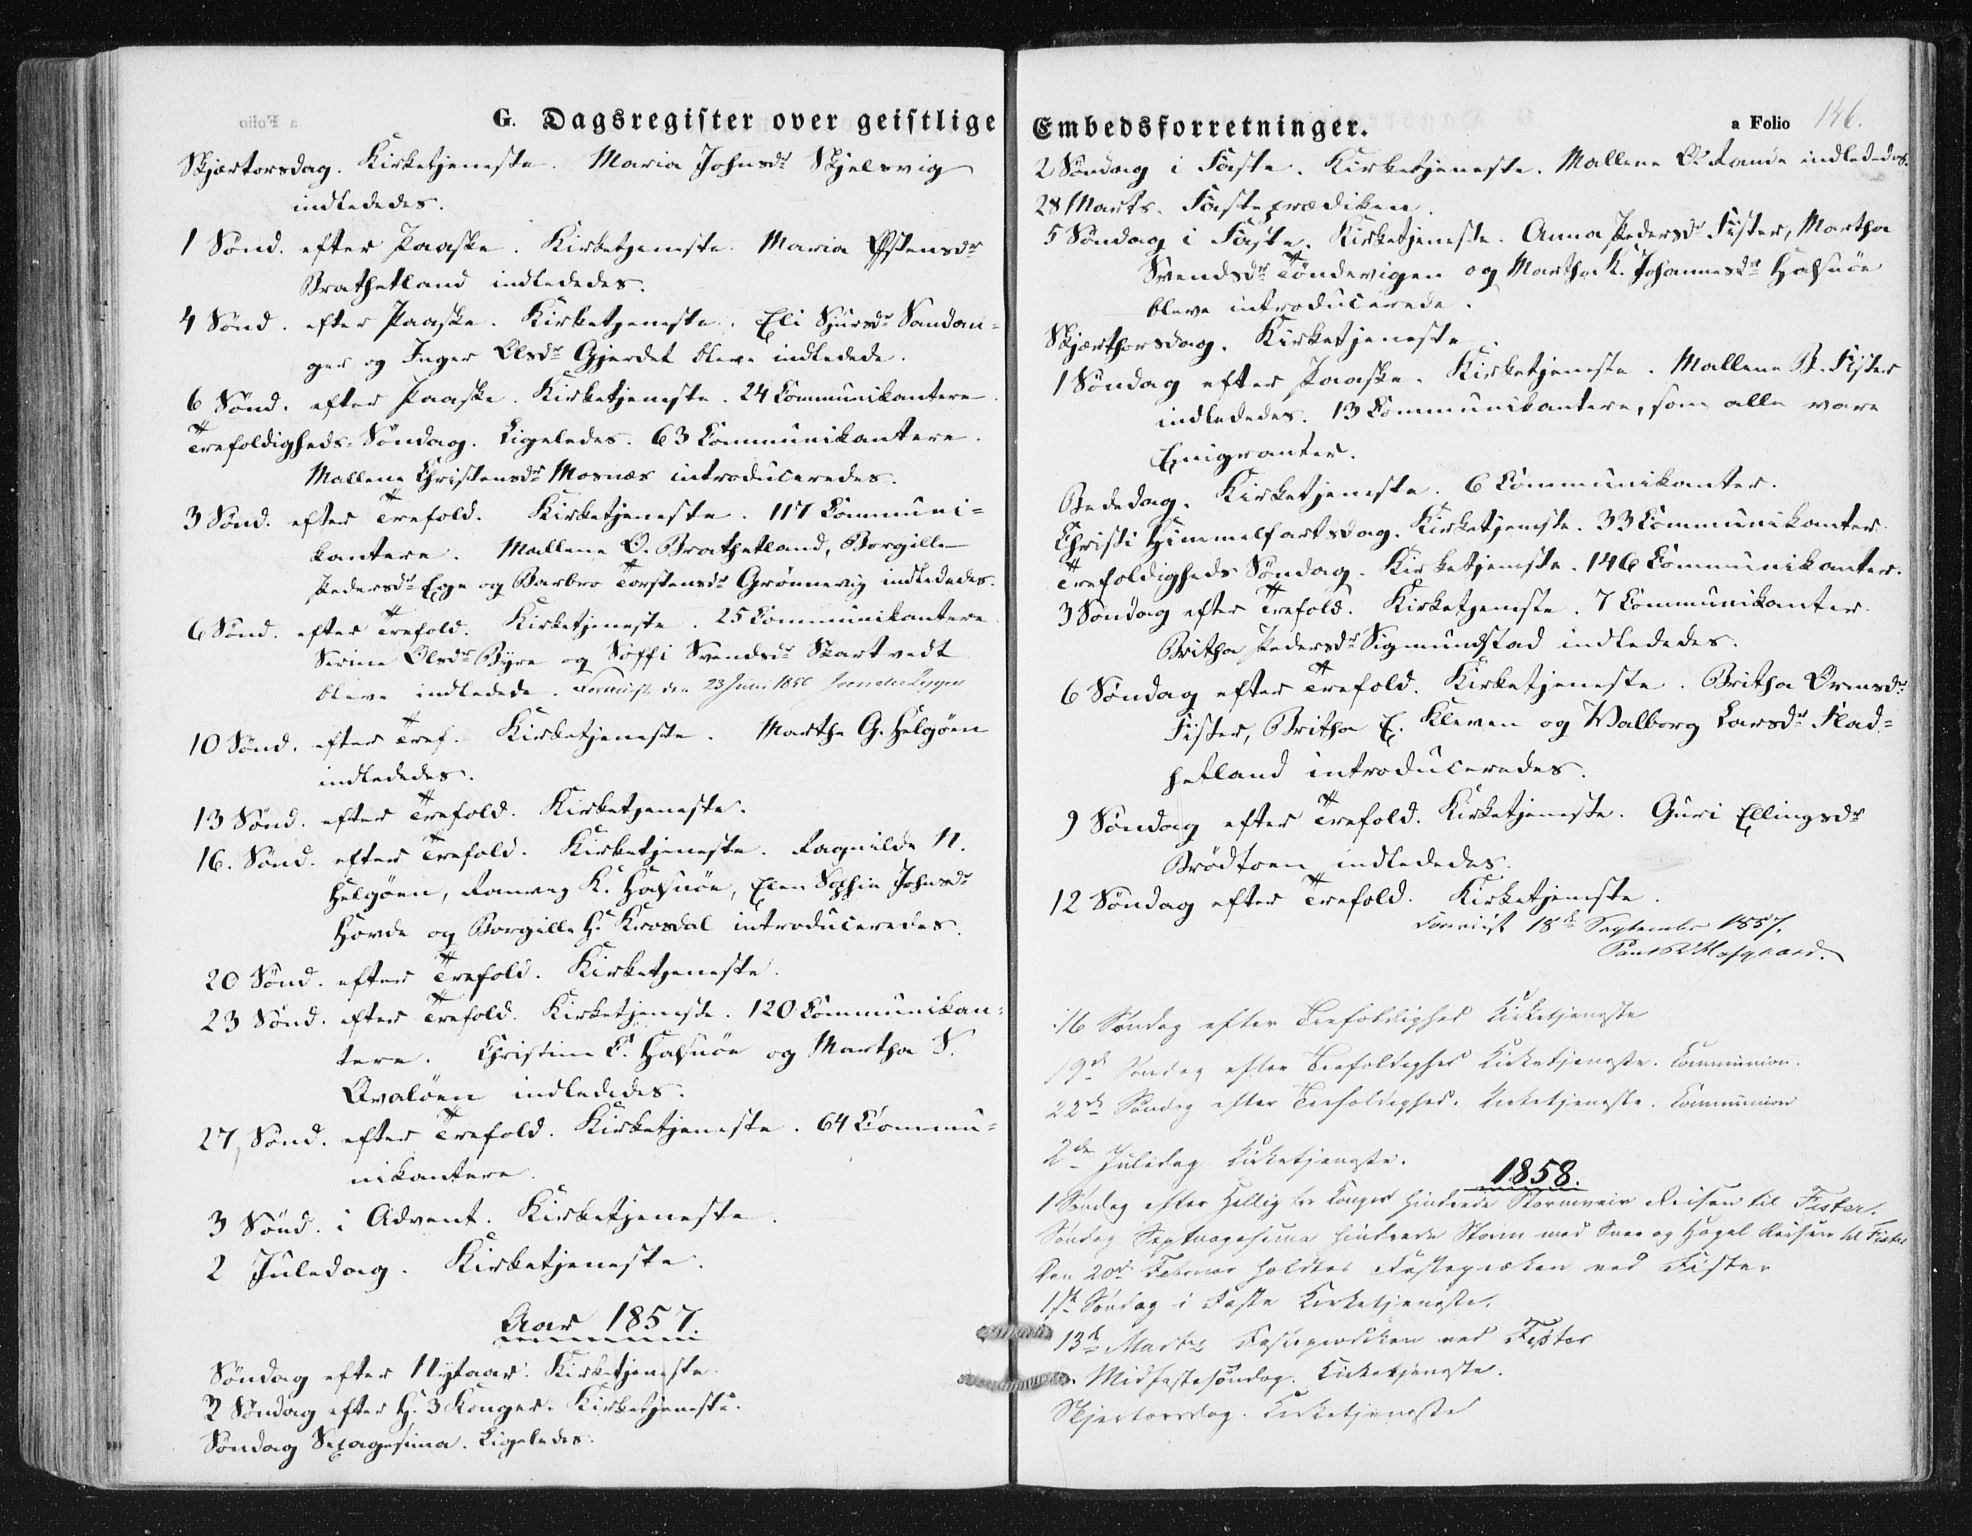 G. Dagsregister over geistlige
Skjærtorsdag. Kirketjeneste. Maria Johnsdr Skjelsvig
indlededes.
1 Sønd. efter Paaske. Kirketjeneste. Maria Østensdr
Brathetland indlededes.
4 Sønd. efter Paaske. Kirketjeneste. Eli Sjursdr Sandan-
ger og Inger Olsdr Gjerdet bleve indledede.
6 Sønd. efter Paaske. Kirketjeneste. 24 Communikantere.
Trefoldigheds-Søndag. Ligeledes. 63 Communikantere.
Mallene Christensdr Mosnæs introduceredes.
3 Sønd. efter Trefold. Kirketjeneste. 117 Communi-
kantere. Mallene O. Brathetland, Borgille
Pedersdr Ege og Barbro Torstensdr Grønnevig indlededes.
6 Sønd. efter Trefold. Kirketjeneste. 25 Communikantere
Serine Olsdr Byre og Soffi Svendsdr Skartvedt
bleve indledede. Foreviist den 23 Juni 1856
10 Sønd. efter Tref. Kirketjeneste. Marthe G. Helgøen
indlededes.
13 Sønd. efter Trefold. Kirketjeneste.
16. Sønd. efter Trefold. Kirketjeneste. Ragnilde N.
Helgøen, Ranveg K. Halsnøe, Elen Sophie Johnsdr
Hovde og Borgille H. Krosdal introduceredes.
20 Sønd. efter Trefold. Kirketjeneste.
23 Sønd. efter Trefold. Kirketjeneste. 120 Communikan-
tere. Christine E. Halsnøe og Martha S.
Qvaløen indlededes.
27, Sønd. efter Trefold. Kirketjeneste. 64 Commu-
nikantere.
3 Sønd. i Advent. Kirketjeneste.
2 Juledag. Kirketjeneste.
Aar 1857
Søndag efter Nytaar. Kirketjeneste
2 Søndag efter H. 3 Konger. Kirketjeneste.
Søndag Sexagesima. Ligeledes.
Embedsforretninger.
a Folio 146.
2 Søndag i Faste. Kirketjeneste. Mallene O. Rande indlededes.
28 Marts. Fasteprædiken.
5 Søndag i Faste. Kirketjeneste. Anna Pedersdr Fister, Martha
Svendsdr Tøndevigen og Martha K. Johannesdr Halsnøe
bleve introducerede.
Skjærthorsdag. Kirketjeneste.
1 Søndag efter Paaske. Kirketjeneste. Mallene B. Fister
indlededes. 13 Communikantere, som alle vare
Emigranter.
Bededag. Kirketjeneste. 6 Communikanter.
Christi Himmelfartsdag. Kirketjeneste. 33 Communikanter.
Trefoldigheds Søndag. Kirketjeneste. 146 Communikanter.
3 Søndag efter Trefold. Kirketjeneste. 7 Communikanter.
Britha Pedersdr Sigmundstad indlededes.
6 Søndag efter Trefold. Kirketjeneste. Britha Ormsdr
Fister, Britha E. Kleven og Valborg Larsdr Flad-
hetland introduceredes.
9 Søndag efter Trefold. Kirketjeneste. Guri Ellingsdr
Brødtoen indlededes.
12 Søndag efter Trefold. Kirketjeneste.
Foreviist 18de September 1857.
16 Søndag efter Trefoldighed Kirketjeneste
19de Søndag efter Trefoldighed Kirketjeneste. Communion.
22de Søndag efter Trefoldighed. Kirketjeneste. Communion
2den Juledag Kirketjeneste.
1858.
1 Søndag efter Hellig tre Konger hindrede Stormveir Reisen til Fister.
Søndag Septuagesima hindrede Storm med Snee og Hagel Reisen til Fister
Den 20de Februar holdtes Fastepræken ved Fister
1ste Søndag i Faste Kirketjeneste.
13de Marts Fasteprædiken ved Fister
Midfastesøndag. Kirketjeneste.
Skjertorsdag. Kirketjeneste